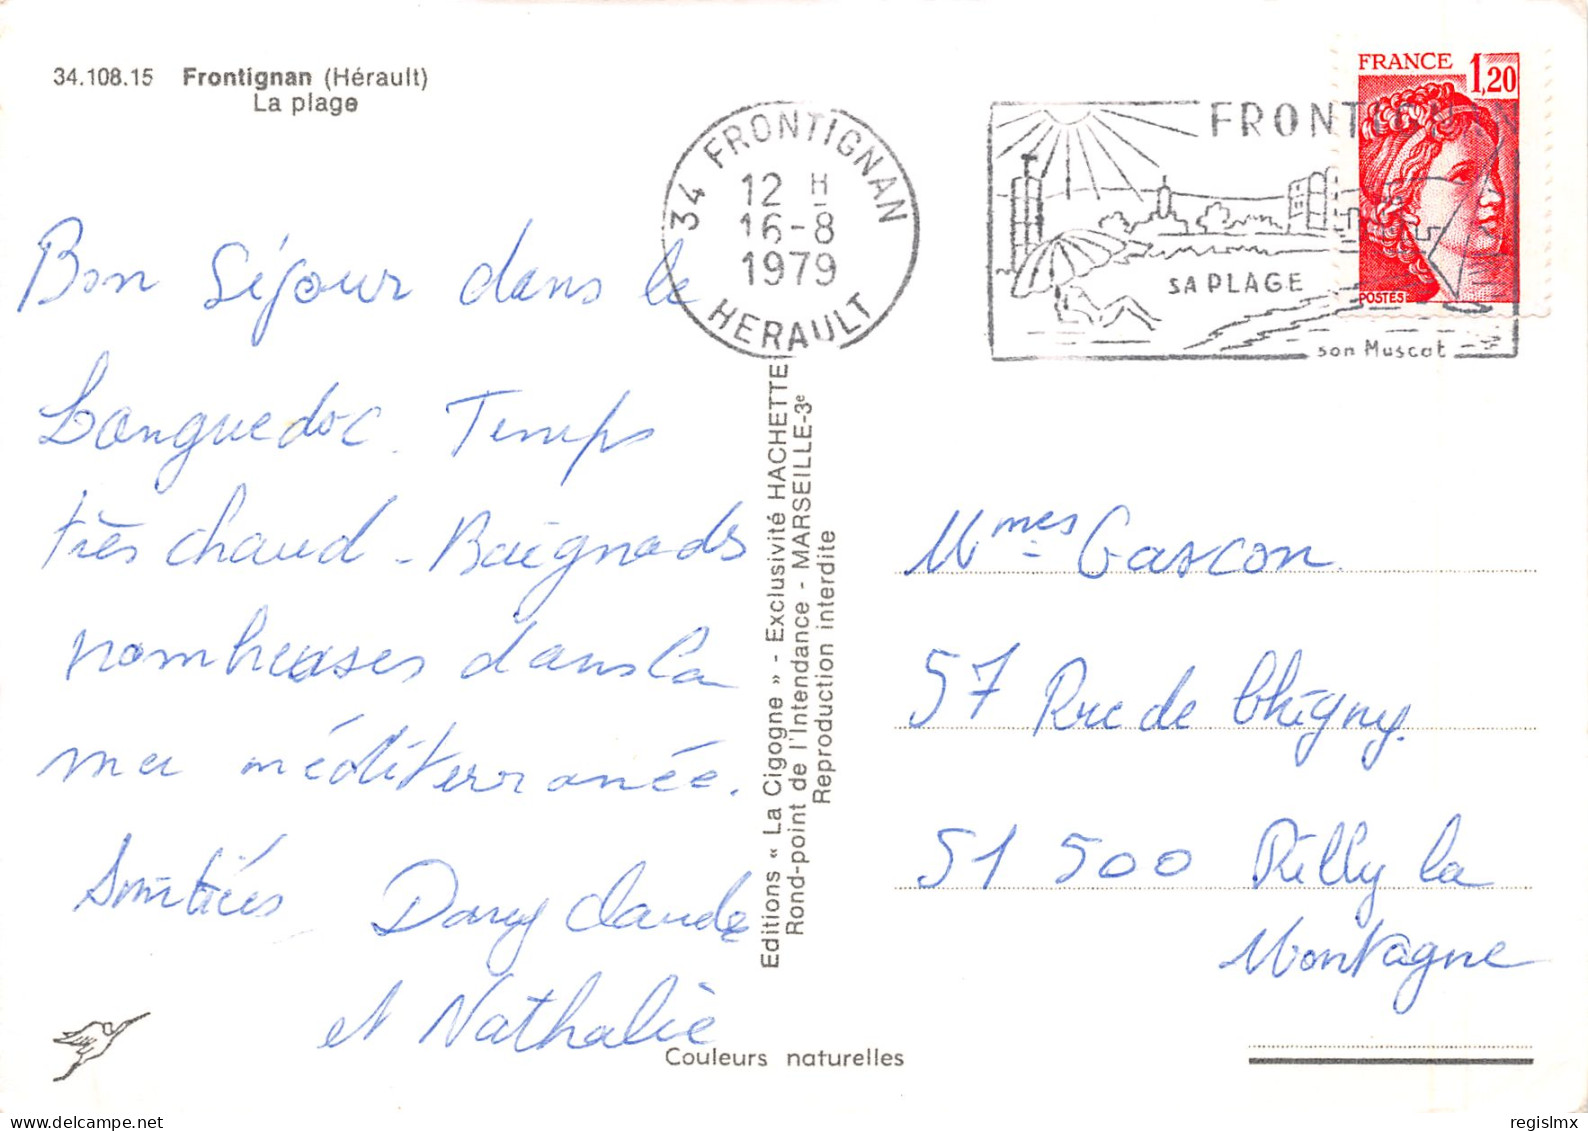 34.108.15 Frontignan (Hérault)
La plage
34 FRONTIGNAN
12 H
16-8
1979
HERAULT
FRONTIGNAN
SA PLAGE
son Muscat
FRANCE 1,20
POSTES
Bon Séjour dans le
Languedoc. Temps
très chaud - Baignades
nombreuses dans la
mer méditerranée.
Amitiés Dany Claude
et Nathalie
Editions « La Cigogne » - Exclusivité HACHETTE
Rond-point de l'Intendance - MARSEILLE-3e
Reproduction interdite
Mmes Gascon
57 Rue de Chigny
51 500 Rilly la
Montagne
Couleurs naturelles
delcampe.net
regislmx